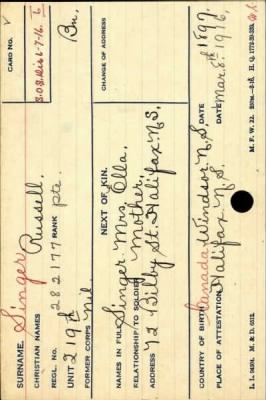 SURNAME. Singer
CARD NO. V
CHRISTIAN NAMES Russell.
S.O.S. Dis 6-7-16.
REGL. NO. 282177 RANK Pte.
UNIT 219th Bn.
FORMER CORPS Nil
NEXT OF KIN.
CHANGE OF ADDRESS
NAMES IN FULL Singer Mrs. Ella.
RELATIONSHIP TO SOLDIER Mother.
ADDRESS 72 Bilby St. Halifax N.S.
COUNTRY OF BIRTH Canada Windsor N.S. DATE 1897
PLACE OF ATTESTATION Halifax N.S. DATE Mar. 8th 1916.
L. L. M. & D.
M. F. W. 22.